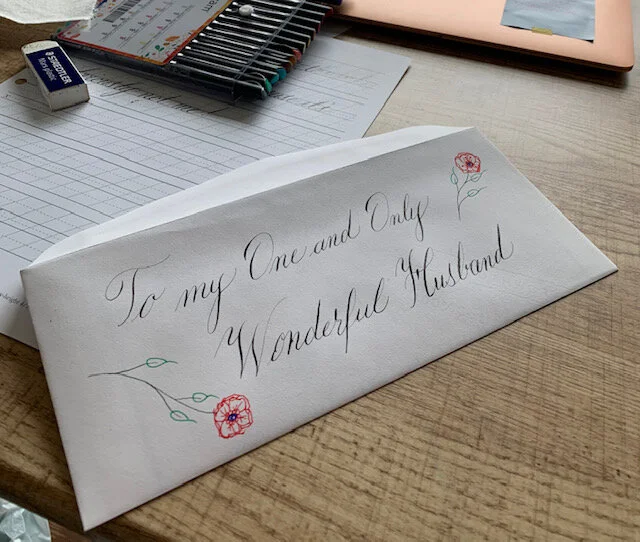 STAEDTLER
Mars plastic
To my One and Only
Wonderful Husband